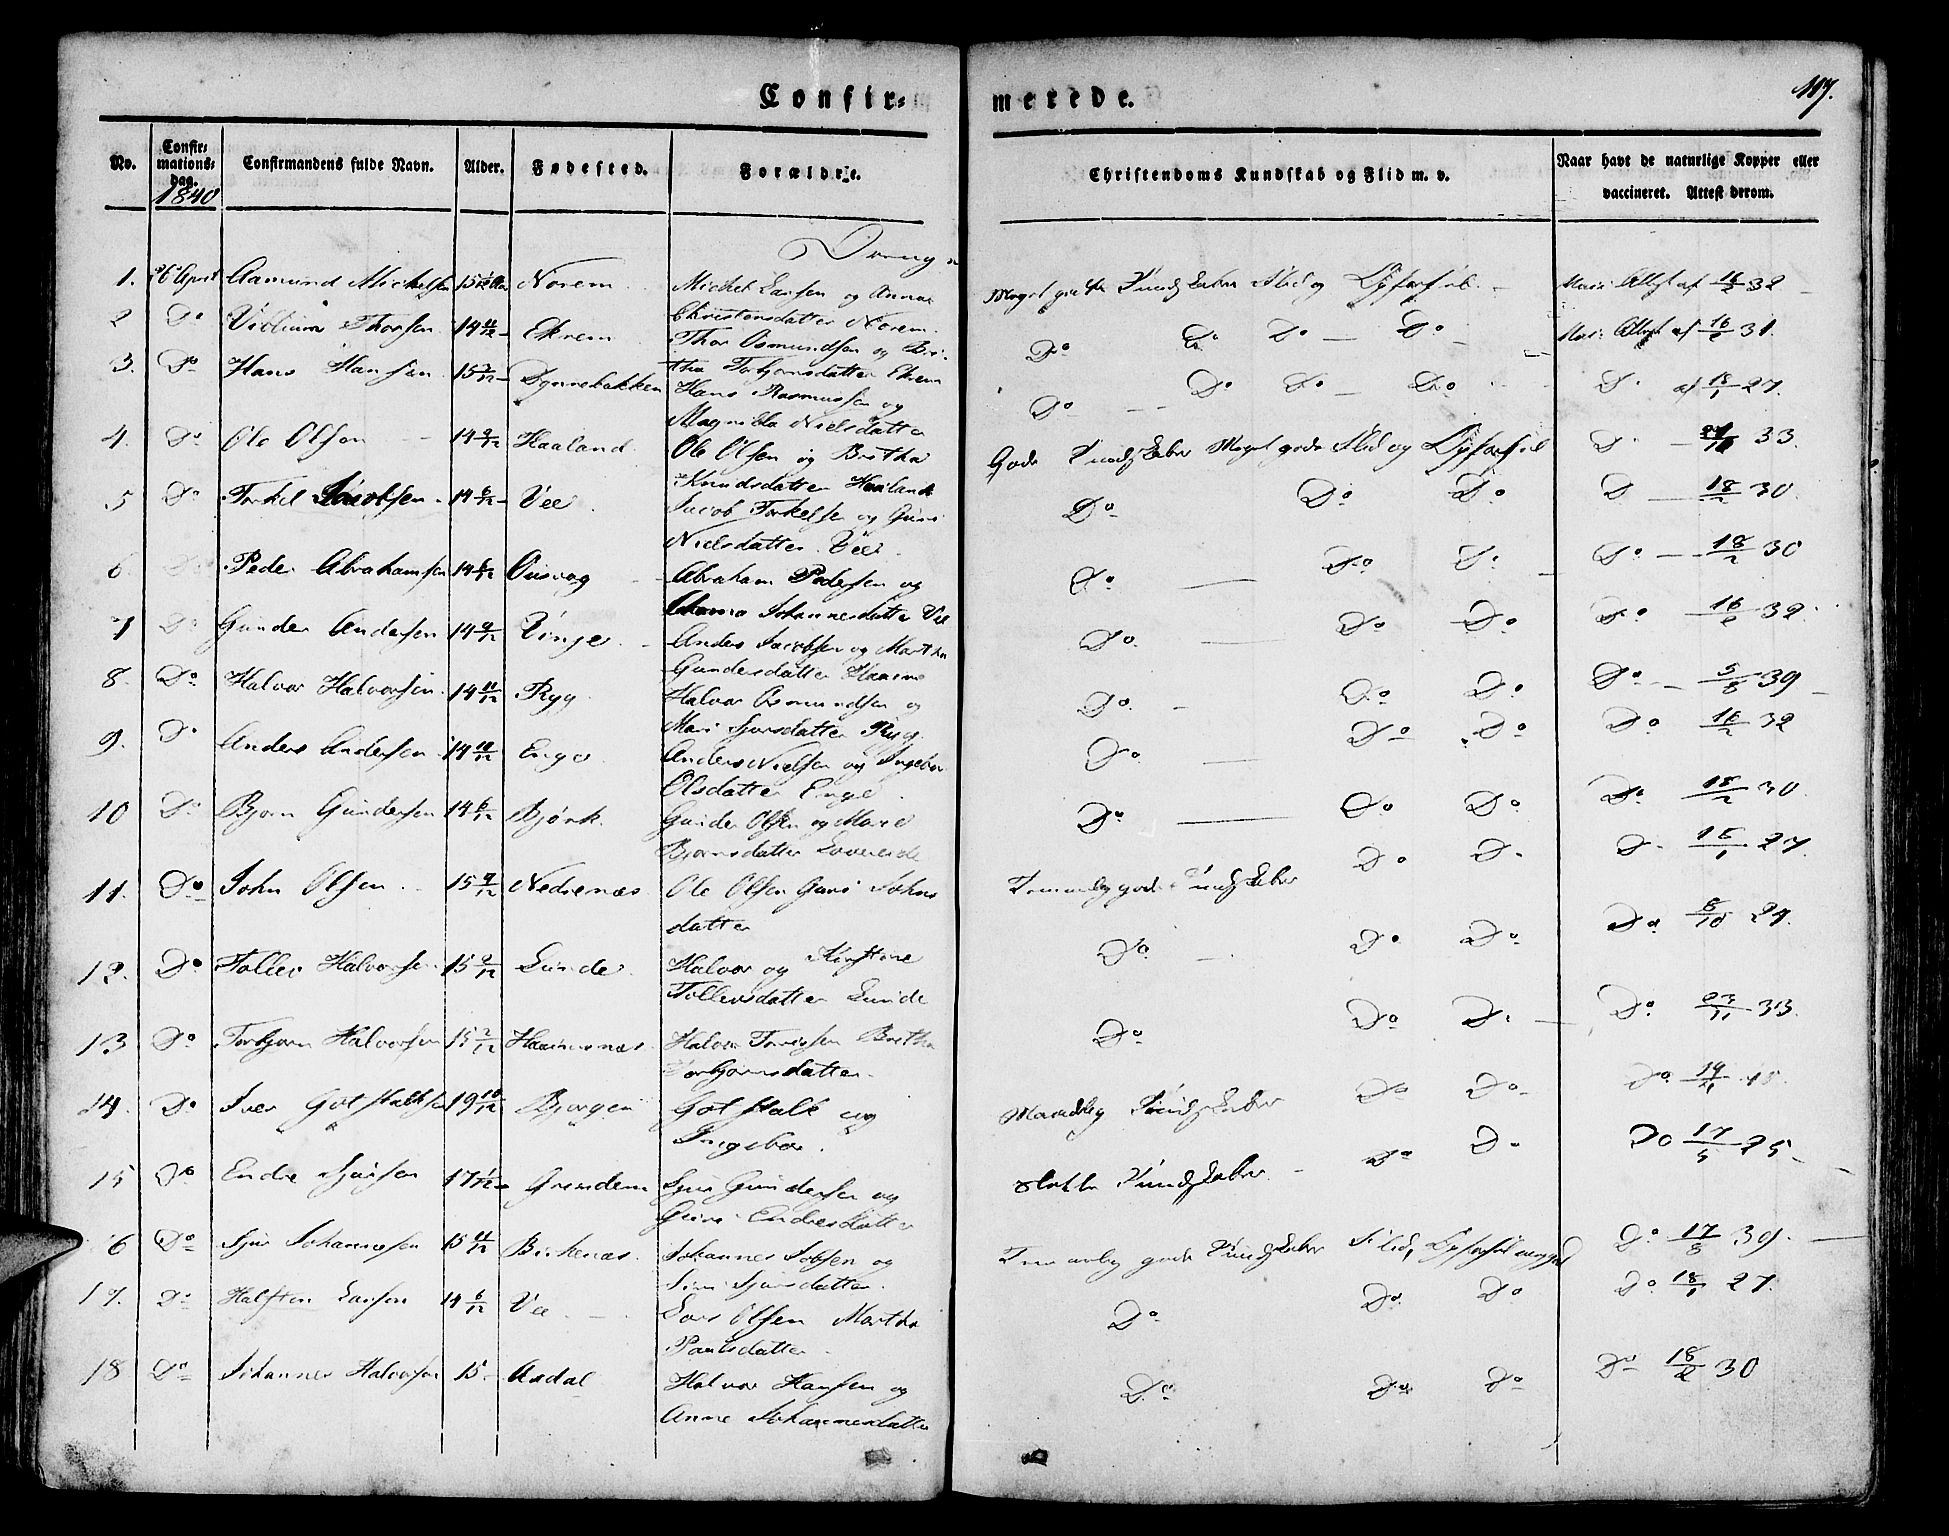 Confir=
merede.
117.
No.
Confir=
mations=
dag.
1840
Confirmandens fulde Navn.
Alder.
Fødested.
Forældre.
Christendoms Kundskab og Flid m. v.
Naar havt de naturlige Kopper eller
vaccineret. Attest derom.
1. 26 April Aamund Michelsen 15 Norem Michel Larsen og Anna
Christensdatter Norem.
Meget gode Kundskaber Flid og Opførsel Attest af 16/2 32
2 Do Thorsen 14 11/12 Ekrem Thor Osmundsen og Bri-
tha Torbjornsdatter Ekrem
Do Do Do Do Attest af 16/2 31.
3. Do Hans Hansen 15 2/12 Dynnebakken Hans Rasmussen og
Magnilda Nielsdatter
Do Do Do Do Do af 18/1 27.
4. Do Ole Olsen 14 9/12 Haaland Ole Olsen og Britha
Knudsdatter Haaland
Gode Kundskaber Meget gode Flid og Opførsel Do 33.
5 Do Torkel Jacobsen 14 6/12 Vee Jacob Torkelsen og Guri
Nielsdatter Vee.
Do Do Do Do 18/2 30.
6 Do Peder Abrahamsen 14 6/12 Abraham Pedersen og
Johannesdatter Vee
Do Do Do Do 18/2 30
7 Do Gunder Andersen 14 9/12 Vinje Anders Jacobsen og Martha
Gundersdatter
Do Do Do Do 16/2 32.
8. Do Halvor Halvorsen 14 11/12 Ryg Halvor Osmundsen og
Mari Sjursdatter Ryg.
Do Do Do Do 5/8 39
9. Do Anders Andersen 14 10/12 Enge Anders Nielsen og Ingebor
Olsdatter Enge
Do. Do Do Do 16/2 32
10 Do Bjorn Gundersen 14 6/12 Bjørk Gunder Olsen og Mari
Bjornsdatter
Do Do Do Do 18/2 30.
11. Do John Olsen 15 9/12 Nedrenæs Ole Olsen Guri Johns
datter
Temmelig gode Kundskaber Do Do Do 18/1 27.
12. Do Tollev Halvorsen 15 9/12 Lunde Halvor og Kirstine
Tollevsdatter Lunde
Do Do Do Do 8/10 24.
13 Do Torbjorn Halvorsen 15 2/12 Halvor Britha
Torbjornsdatter.
Do Do Do Do 23/11 33.
14. Do Iver Gotskalksen 19 10/12 Bjorgen Gotskalk og
Ingebor.
Maadelig Kundskaber Do Do Do
15 Do Endre Sjursen 17 1/12 Grindem Sjur Gundersen og
Guri Endresdatter
slette Kundskaber. Do Do Do 17/5 25.
16 Do Sjur Johannesen 15 11/12 Birkenæs Johannes Jobsen og
Siri Sjursdatter.
Temmelig gode Kundskaber Flid, Opførsel Do 17/8 39.
17. Do Halsten Larsen 14 6/12 Vee Lars Olsen Martha
Paulsdatter
Do Do Do Do 18/1 27.
18 Do Johannes Halvorsen 15 Aadal Halvor Hansen og
Anne Johannesdatter
Do Do Do Do 18/2 30